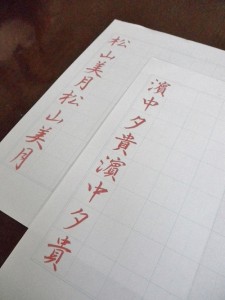 濱中夕貴濱中夕貴
松山美月松山美月